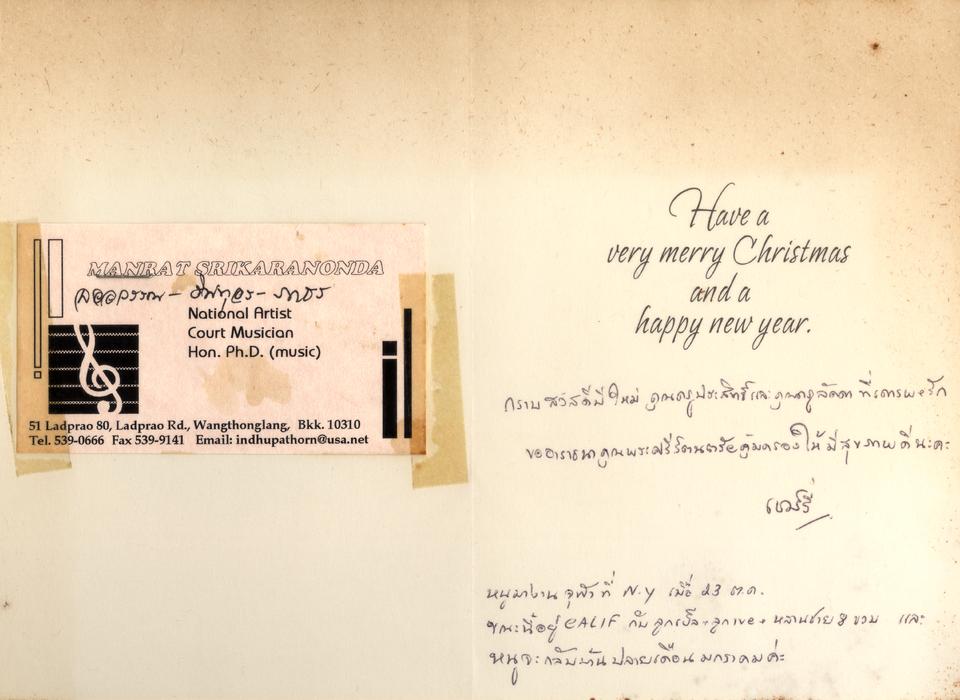 MANRAT SRIKARANONDA
National Artist
Court Musician
Hon. Ph.D. (music)
51 Ladprao 80, Ladprao Rd., Wangthonglang, Bkk. 10310
Tel. 539-0666 Fax 539-9141 Email: indhupathorn@usa.net
Have a
very merry Christmas
and a
happy new year.
กราบสวัสดีปีใหม่ คุณครูประสิทธิ์และคุณครูลัดดา ที่เคารพและรัก
ขออาราธนาคุณพระศรีรัตนตรัยคุ้มครองให้มีสุขภาพดีนะคะ
หนูมางานจุฬาที่ N.Y เมื่อ 23 ต.ค.
ขณะนี้อยู่ CALIF กับลูก หลานชาย 8 ขวบ และ
หนูจะกลับบ้านปลายเดือนมกราคมค่ะ